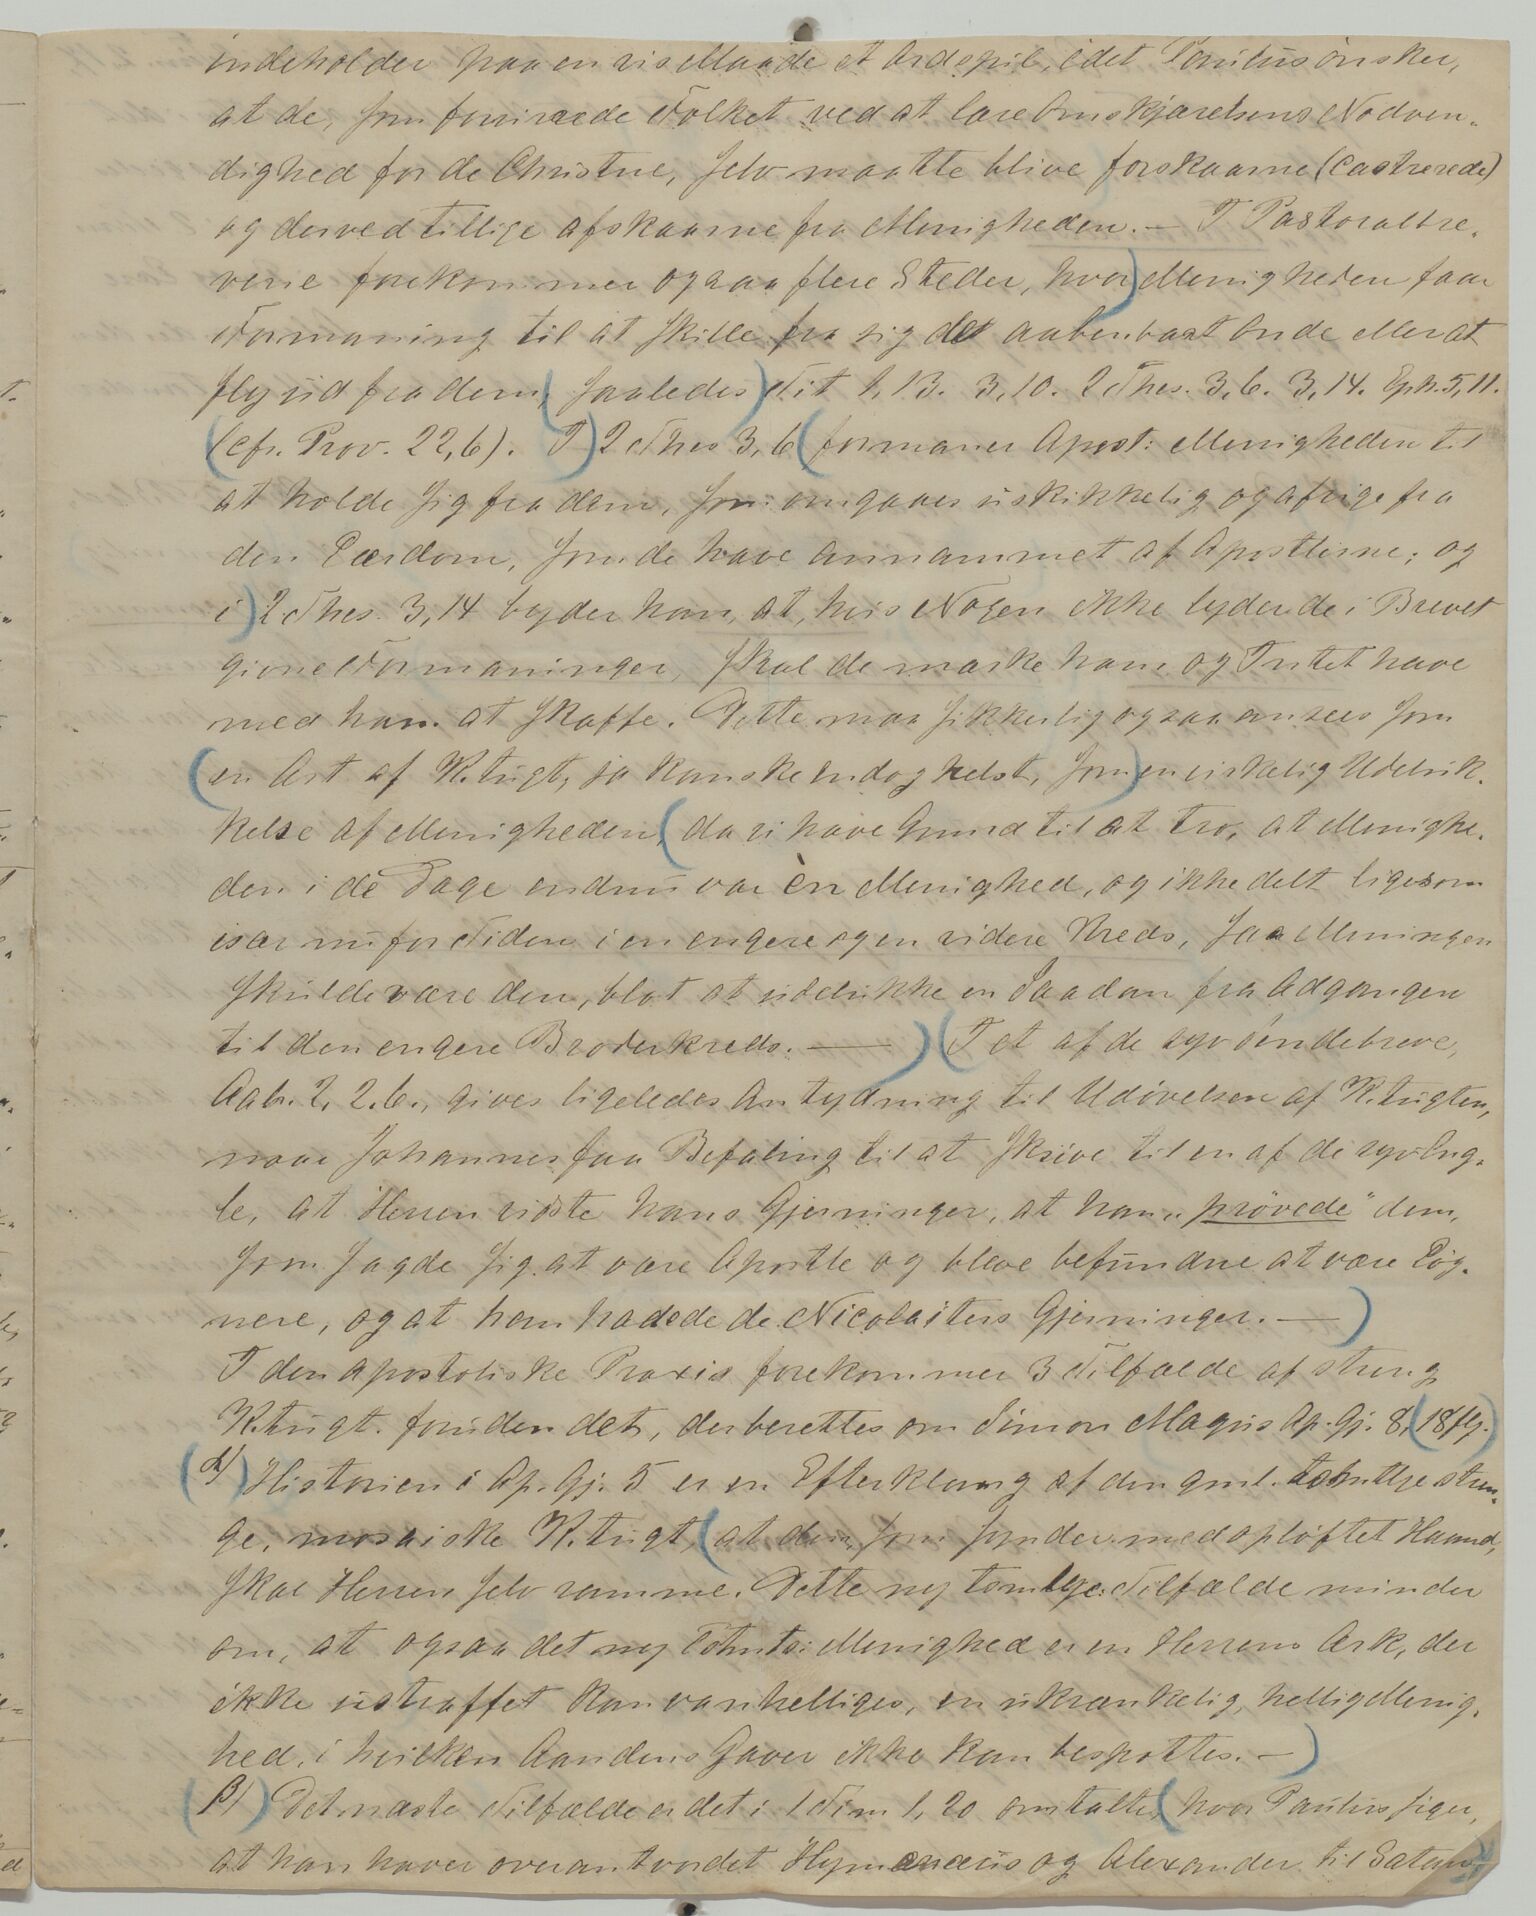 indeholder paa en vis Maade et Ordspil, idet Paulus önsker,
at de, som forvirrede Folket ved at lære Omskjærelsens Nødven-
dighed for de Christne, selv maatte blive forskaarne (castrerede)
og derved tillige afskaarne fra Menigheden. — I Pastoralbre-
vene forekommer ogsaa flere Steder, hvor) Menigheden faar
Formaning til at skille fra sig det aabenbart Onde eller at
fly ud fra dem, (saaledes) Tit 1,13. 3,10. 2 Thes. 3,6. 3,14. Eph. 5,11.
(cfr. Prov. 22,6). I) 2 Thes 3,6 (formaner Apost: Menigheden til
at holde sig fra dem, som omgaaes uskikkelig og afvige fra
den Lærdom, som de have annammet af Apostlerne; og
i) 2 Thes. 3,14 byder han, at, hvis Nogen ikke lyder de i Brevet
givne Formaninger, skal de mærke ham og Intet have
med ham at skaffe. Dette maa sikkerlig ogsaa ansees som
(en Art af K.tugt, ja kanske endog helst, som) en virkelig Udeluk-
kelse af Menigheden, (da vi have Grund til at tro, at Menighe-
den i de Dage endnu var èn Menighed, og ikke delt ligesom
især nu for Tiden i en engere og en videre Kreds, saa Meningen
skulde være den, blot at udelukke en Saadan fra Adgangen
til den engere Broderkreds. — ) (I et af de syv Sendebreve,
Aab. 2, 2.6., gives ligeledes Antydning til Udövelsen af K.tugten,
naar Johannes faar Befaling til at skrive til en af de syv Eng-
le, at Herren vidste hans Gjerninger, at han „prövede" dem,
som sagde sig at være Apostle og bleve befundne at være Lög-
nere, og at han hadede de Nicolaiters Gjerninger. — )
I den apostoliske Praxis forekommer 3 Tilfælde af streng
K.tugt. foruden det, der berettes om Simon Magus Ap. Gj. 8, (18 flg.)
(α) Historien i Ap. Gj. 5 er en Efterklang af den gml. tstmtlge stren-
ge, mosaiske K.tugt, (at den, som synder med oplöftet Haand,
skal Herren selv ramme. Dette ny tsmtlge: Tilfælde minder
om, at ogsaa det ny Tstmts: Menighed er en Herrens Ark, der
ikke ustraffet kan vanhelliges, en ukrænkelig, hellig Menig-
hed, i hvilken Aandens Gaver ikke kan bespottes. — )
(β) Det næste Tilfælde er det i 1 Tim 1,20 omtalte, (hvor Paulus siger,
at han haver overantvordet Hymenæus og Alexander til Satan,